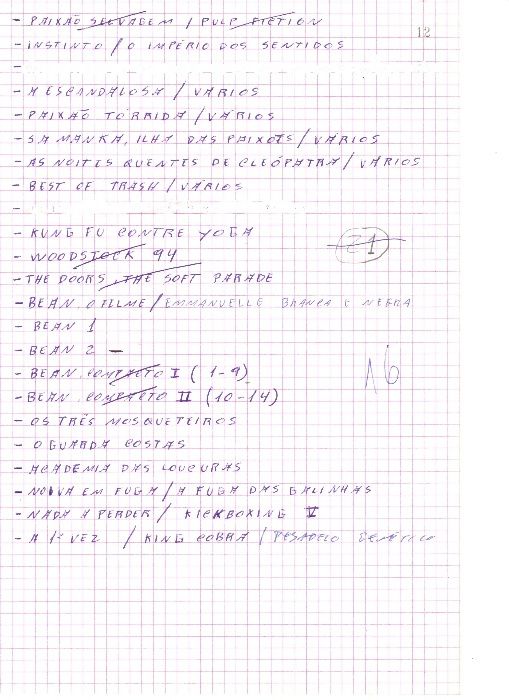 - PAIXÃO SELVAGEM / PULP FICTION
12
- INSTINTO / O IMPÉRIO DOS SENTIDOS
-
- A ESCANDALOSA / VÁRIOS
- PAIXÃO TÓRRIDA / VÁRIOS
- SAMANKA, ILHA DAS PAIXÕES / VÁRIOS
- AS NOITES QUENTES DE CLEÓPATRA / VÁRIOS
- BEST OF TRASH / VÁRIOS
-
- KUNG FU CONTRE YOGA
21
- WOODSTOCK 94
- THE DOORS, THE SOFT PARADE
- BEAN, O FILME / EMMANUELLE BRANCA E NEGRA
- BEAN 1
- BEAN 2 -
- BEAN, COMPACTO I (1-9)
16
- BEAN, COMPACTO II (10-14)
- OS TRÊS MOSQUETEIROS
- O GUARDA COSTAS
- ACADEMIA DAS LOUCURAS
- NOIVA EM FUGA / A FUGA DAS GALINHAS
- NADA A PERDER / KICKBOXING V
- A 1ª VEZ / KING COBRA / PESADELO GENÉTICO